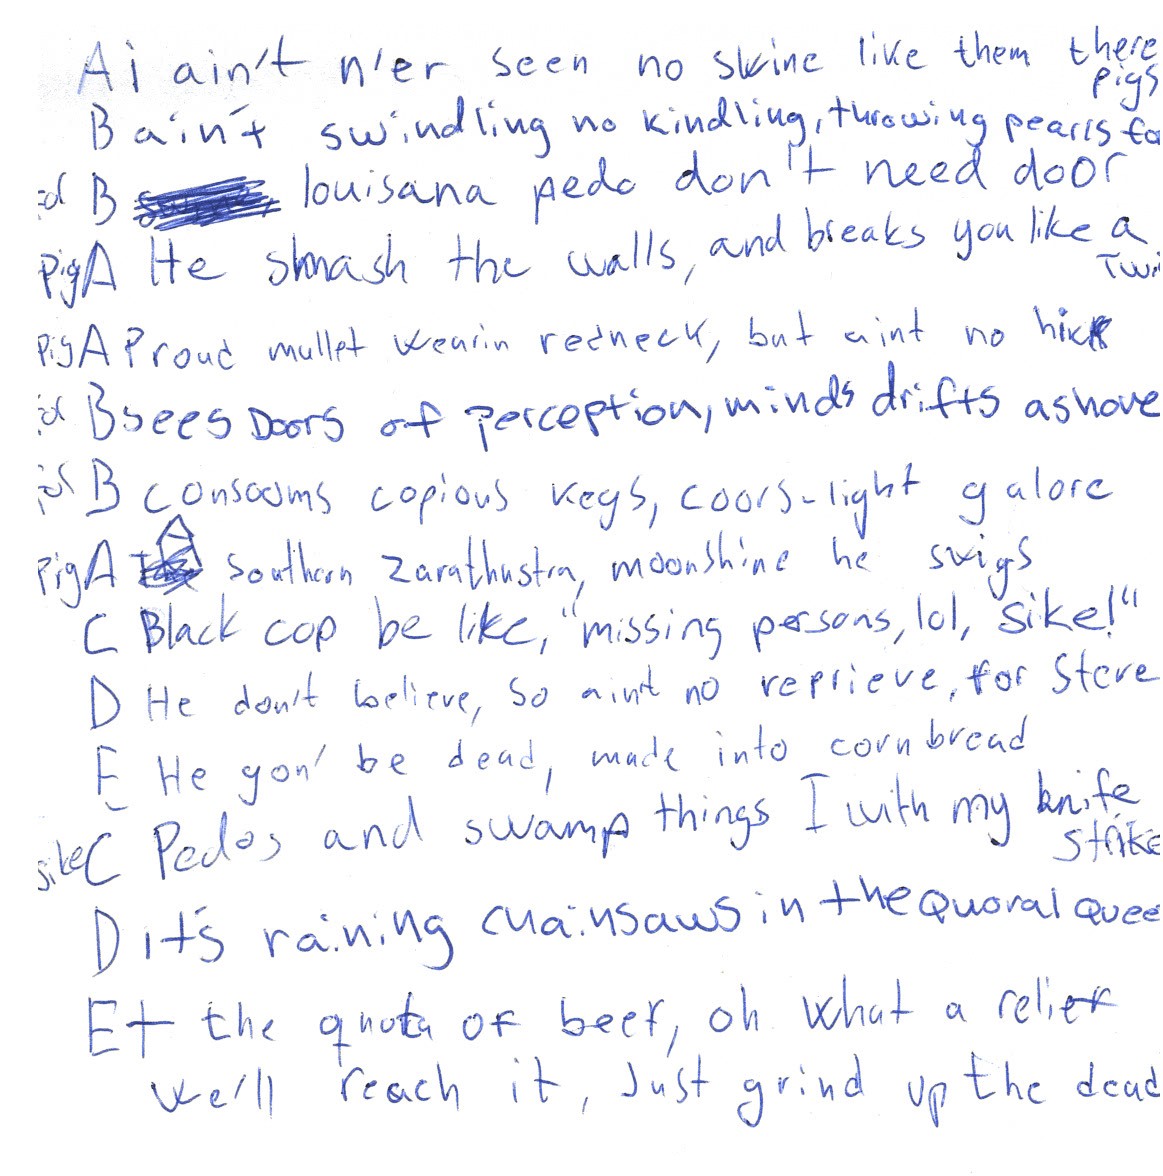 A i ain't n'er seen no skine like them there pigs
B ain't swindling no kindling, throwing pearls fo
B louisana pedo don't need door
pig A He smash the walls, and breaks you like a Twi
pig A Proud mullet wearin redneck, but aint no hick
B sees Doors of perception, minds drifts ashore
B consooms copious kegs, coors-light galore
pig A southern Zarathustra, moonshine he swigs
C Black cop be like, "missing persons, lol, sike!"
D He don't believe, so aint no reprieve, for Steve
E He gon' be dead, made into cornbread
sike C Pedos and swamp things I with my knife strike
D it's raining chainsaws in the quoral quee
E t the quota of beef, oh what a relief
we'll reach it, Just grind up the dead